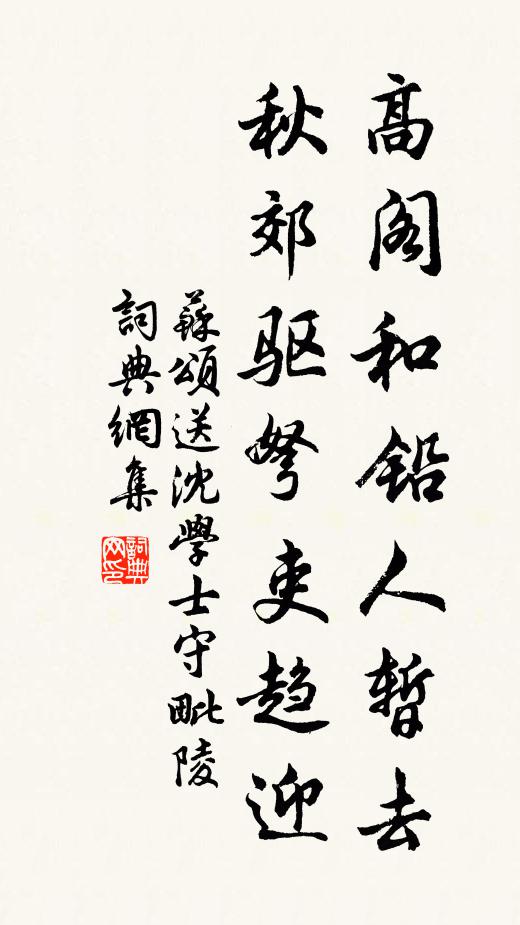 高阁和铅人暂去
秋郊驱弩吏趋迎
蘇頌送沈學士守毗陵
詞典網集
詞典
网印